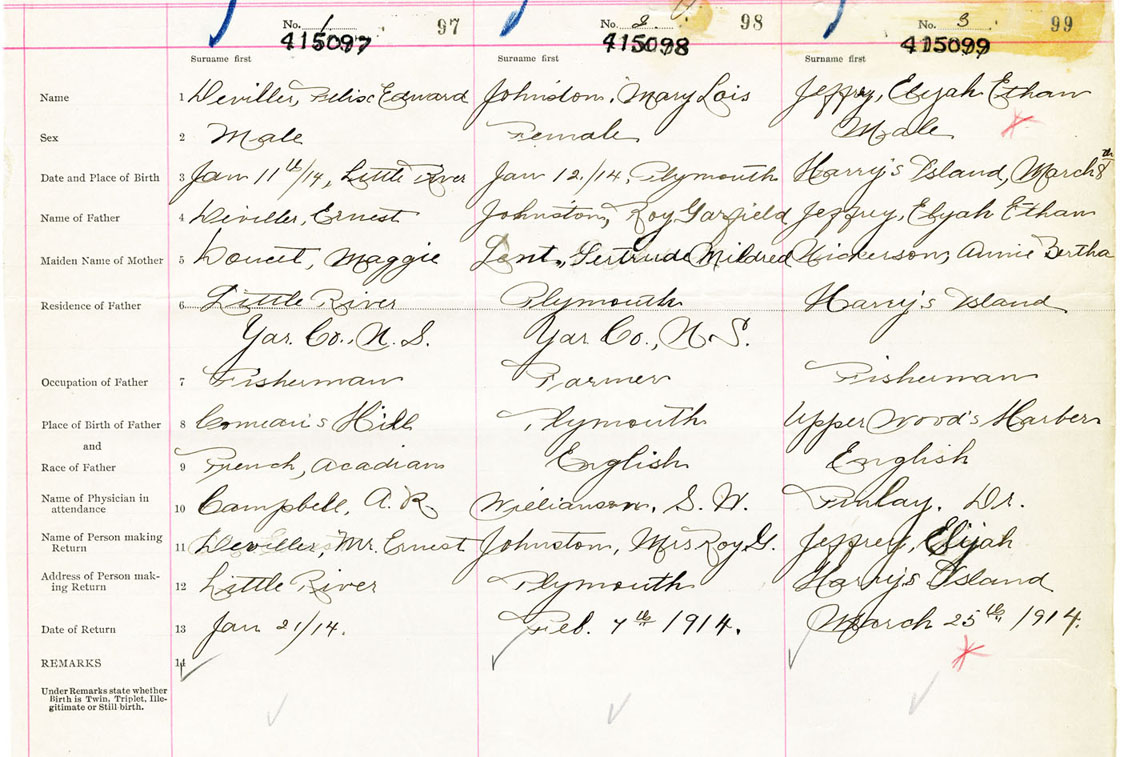 No. 1 97 No. 2 98 No. 3 99
415097 415098 415099
Surname first Surname first Surname first
Name 1 Deviller, Felix Edward Johnston, Mary Lois Jeffry, Elijah Ethan
Sex 2 Male Female Male
Date and Place of Birth 3 Jan 11th/14, Little River Jan 12/14, Plymouth Harry's Island, March 8th
Name of Father 4 Deviller, Ernest Johnston, Roy Garfield Jeffrey, Elijah Ethan
Maiden Name of Mother 5 Doucet, Maggie Lent, Gertrude Mildred Nickerson, Annie Bertha
Residence of Father 6 Little River Plymouth Harry's Island
Yar. Co., N. S. Yar Co., N. S.
Occupation of Father 7 Fisherman Farmer Fisherman
Place of Birth of Father 8 Comeau's Hill Plymouth Upper Wood's Harber
and
Race of Father 9 French, Acadian English English
Name of Physician in
attendance 10 Campbell, A. R. Williamson, S. W. Finlay, Dr.
Name of Person making
Return 11 Deviller, Mr. Ernest Johnston, Mrs Roy G. Jeffrey, Elijah
Address of Person mak-
ing Return 12 Little River Plymouth Harry's Island
Date of Return 13 Jan 21/14. Feb. 7th 1914. March 25th 1914.
REMARKS 14
Under Remarks state whether
Birth is Twin, Triplet, Ille-
gitimate or Still birth.